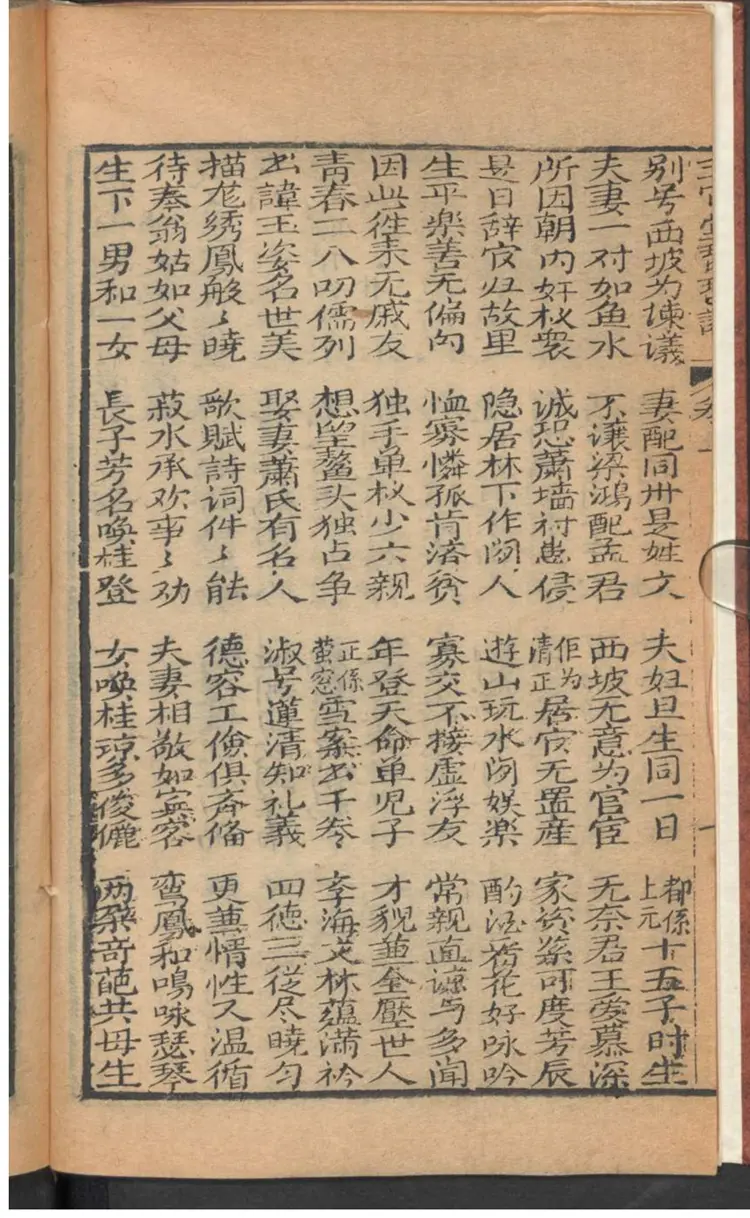 别号西坡为諫議 妻配同卅是姓文 夫妇旦生同一日 都係上元十五子时生
夫妻一对如鱼水 不譲梁鴻配孟君 西坡无意为官宦 无奈君王爱慕深
所因朝内奸权衆 诚恐蕭墙衬患侵 佢为清正居官无置産 家资可度芳辰
是日辞官归故里 隐居林下作閑人 遊山玩水閑娱楽 酌酒看花好咏吟
生平楽善无偏向 恤寡憐孤肯济贫 寡交不接虚浮友 常親直諒与多闻
因此徃来无戚友 独手单权少六親 年登天命单児子 才貌兼全壓世人
青春二八叨儒列 想望鳌头独占争 正係萤窓雪案书千卷 斈海文林蕴满衿
书諱玉姿名世美 娶妻蕭氏有名人 淑号蓮清知礼義 四徳三從尽曉匀
描龙绣鳳般々曉 歌賦詩词件々能 德容工儉俱斉俻 更兼情性又温循
待奉翁姑如父母 菽水承欢事々劝 夫妻相敬如宾客 鸾鳳和鳴咏瑟琴
生下一男和一女 長子芳名喚桂登 女喚桂琼多俊俪 两朶奇葩共母生